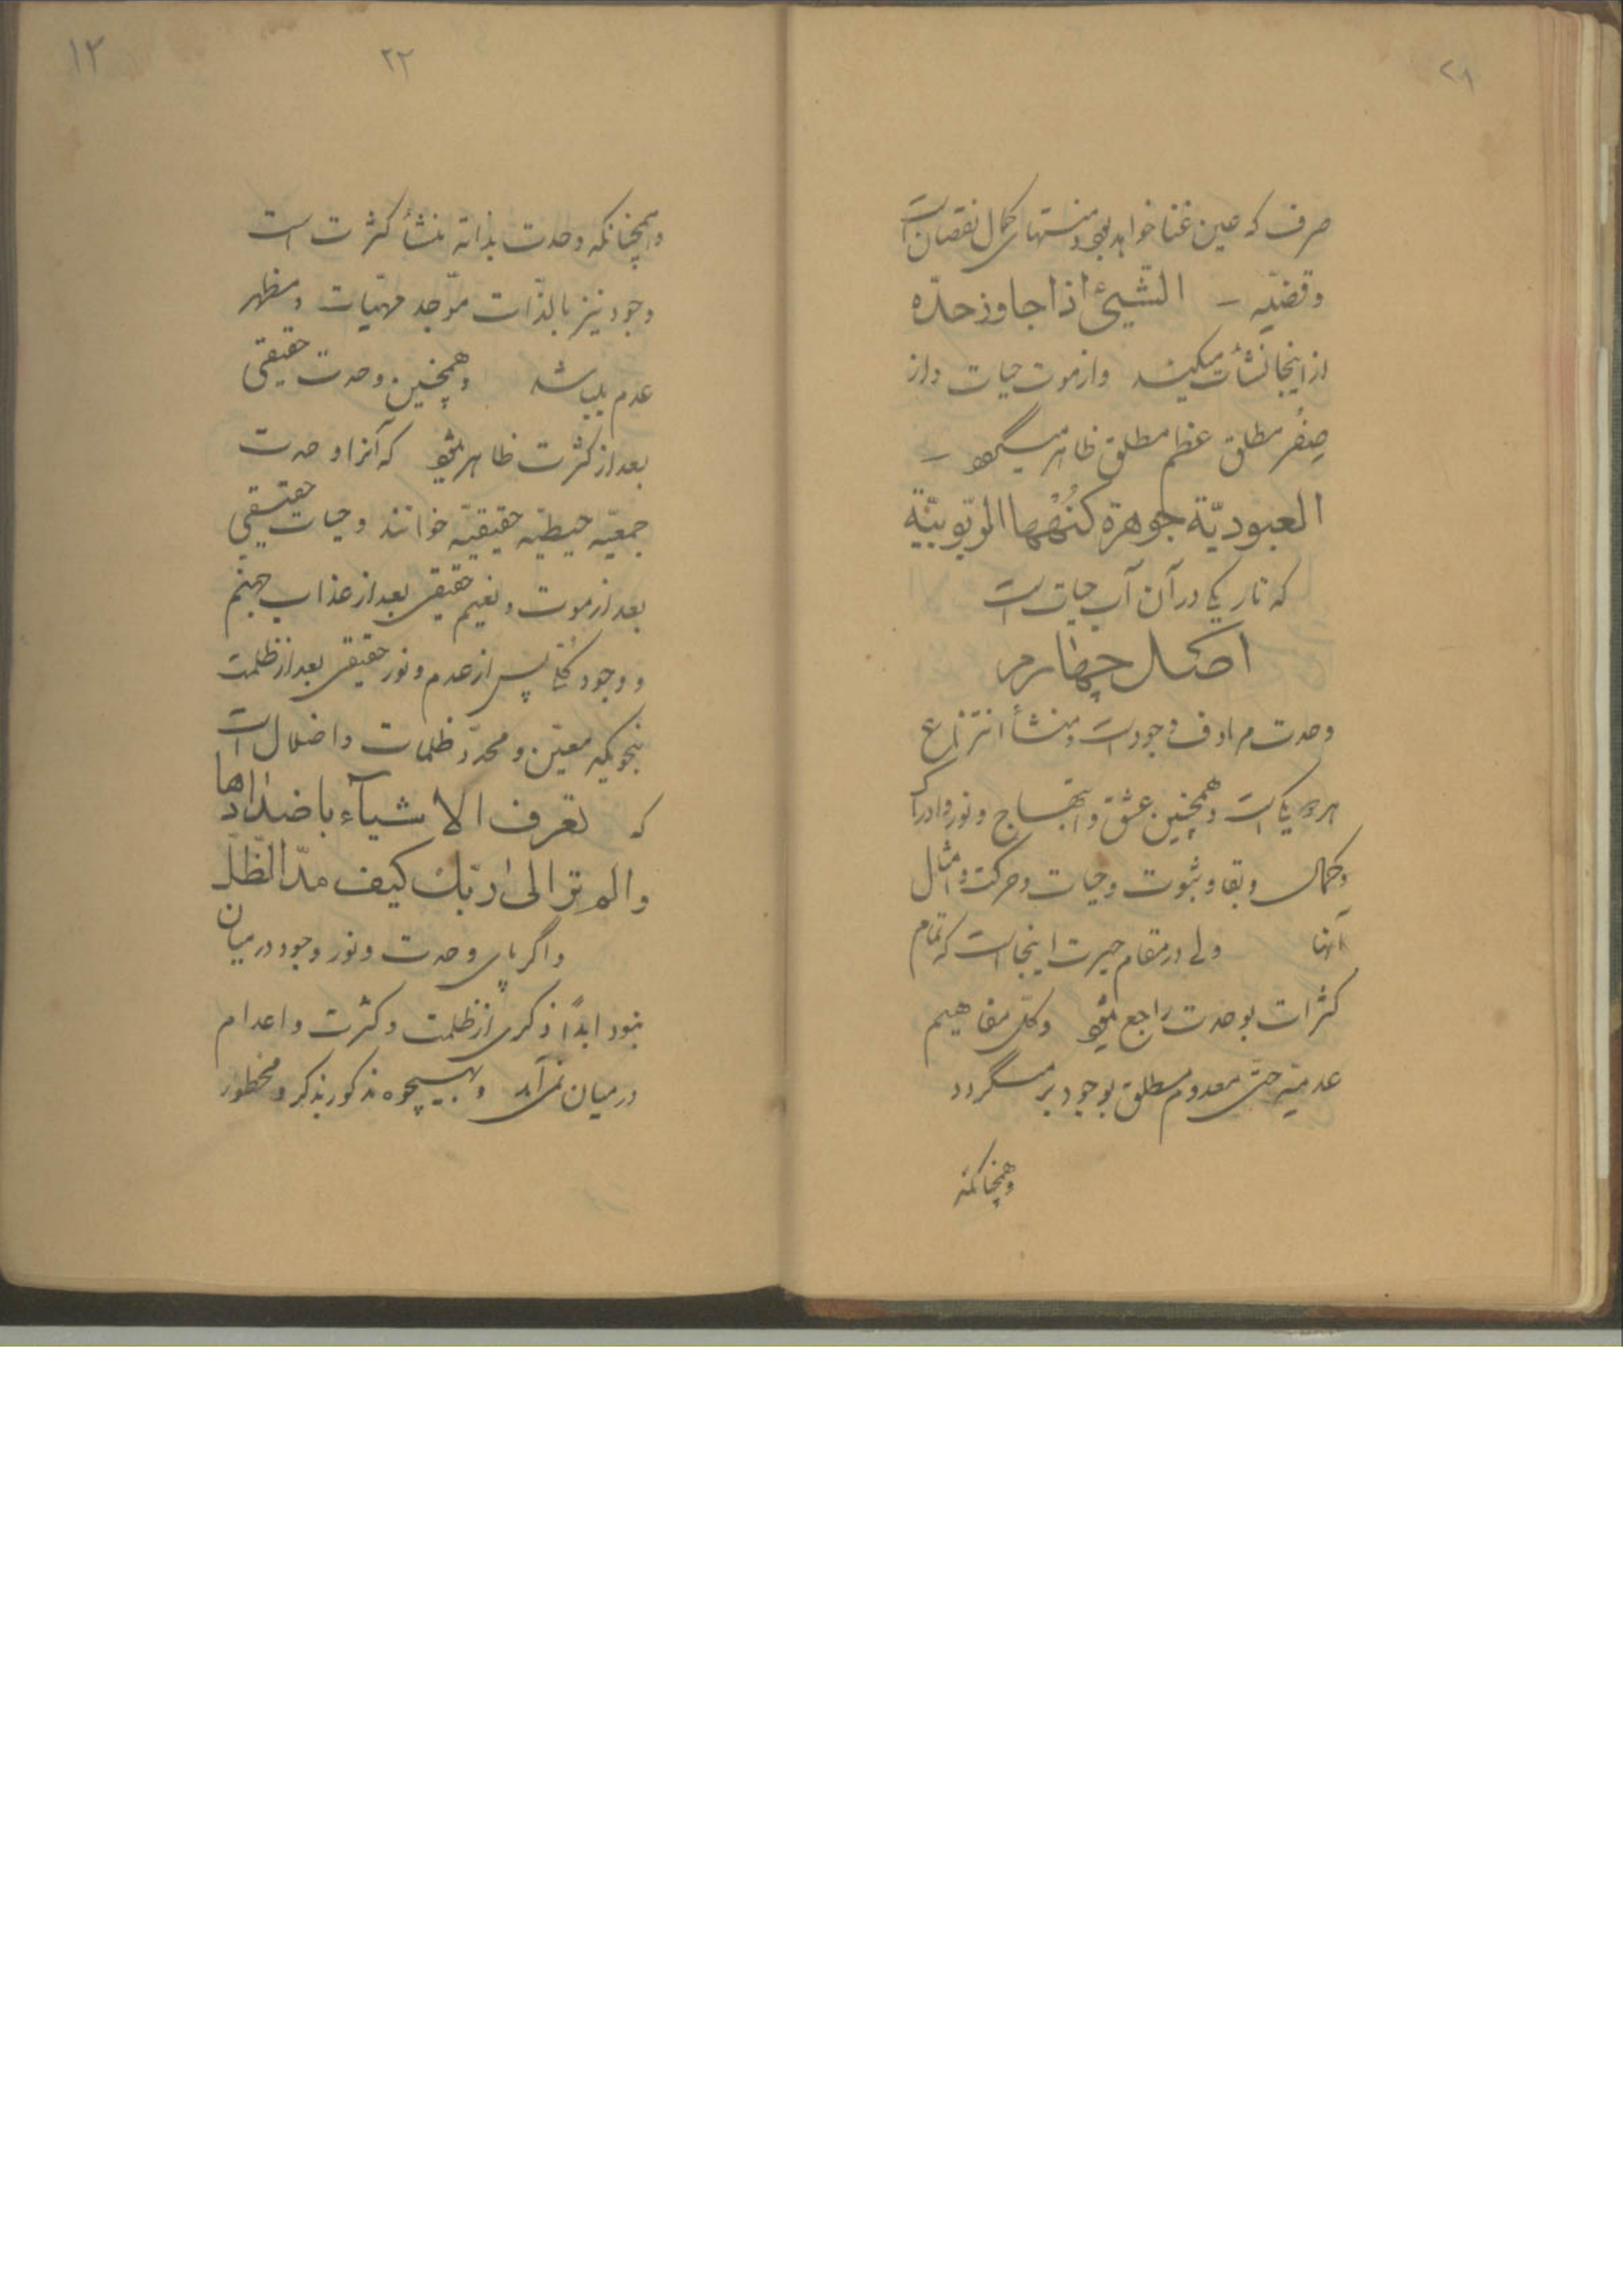 ۲۱
صرف که عین غنا خواهد بود منتهای کمال نقصان است
وقضیّه – الشّیئ اذا جاوز حدّه
از اینجا نشأت میکند واز موت حیات واز
صِفُر مطلق عظم مطلق ظاهر میگردد –
العبودیّة جوهرة کنُهْها الرّبوبیّة
که تاریکی در آن آب حیات است
اصل چهارم
وحدت مرادف وجود است ومنشأ انتزاع
هر دو یکی است وهمچنین عشق وابتهاج ونور وادراک
وکمال وبقا وثبوت وحیات وحرکت وامثال
آنها ولی در مقام حیرت اینجاست که تمام
کثرات بوحدت راجع میشود وکلّ مفاهیم
عدمیّه حتّی معدوم مطلق بوجود بر میگردد
وهمچنانکه
۱۲
۲۲
وهمچنانکه وحدت بذاته منشأ کثرت است
وجود نیز بالذّات موّجد مهیّات ومظهر
عدم میباشد وهمچنین وحدت حقیقی
بعد از کثرت ظاهر میشود که آنرا وحدت
جمعیّه حیطیّه حقیقیّه خوانند وحیات حقیقی
بعد از موت ونعیم حقیقی بعد از عذاب جهنم
ووجود پس از عدم ونور حقیقی بعد از ظلمت
بنحویکه معیّن ومحدّد ظلمات واضلال است
که تعرف الاشیآء باضدادها
والم تر الی ربّك کیف مدّ الظّلّ
واگر پای وحدت ونور وجود در میان
نبود ابداً ذکری از ظلمت وکثرت واعدام
در میان نمی‌آمد وبهیچوجه مذکور بذکر ومخطور